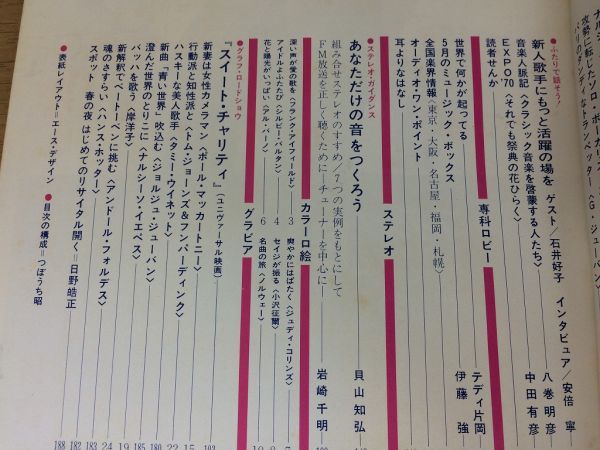 攻勢に転じたソロ・ボーカリス
●ふたりで話そう!
新人歌手にもっと活躍の場を ゲスト/石井好子 インタビュア/安倍 寧
音楽人脈記〈クラシック音楽を啓蒙する人たち〉 八巻明彦
EXPO'70〈それでも祭典の花ひらく〉 中田有彦
読者せんか
専科ロビー
世界で何かが起ってる テディ片岡
5月のミュージック・ボックス 伊藤 強
全国楽界情報〈東京・大阪・名古屋・福岡・札幌〉
オーディオ・ワン・ポイント
耳よりなはなし
ステレオ
●ステレオ・ガイダンス
あなただけの音をつくろう
組み合せステレオのすすめ/7つの実例をもとにして 貝山知弘
FM放送を正しく聴くために/チューナーを中心に 岩崎千明
カラー口絵
深い声が愛の歌を〈フランク・アイフィールド〉 3
爽やかにはばたく〈ジュディ・コリンズ〉 7
アイドルよふたたび〈シルビー・バルタン〉 4
セイジが振る〈小沢征爾〉 8
花と陽光がいっぱい〈アル・バーノ〉 6
名曲の旅〈ノルウェー〉 10
グラビア
●グラフ・ロードショウ
『スイート・チャリティ』(ユニヴァーサル映画) 103
新妻は女性カメラマン〈ポール・マッカートニー〉 15
行動派と知性派と〈トム・ジョーンズ&フンパーディンク〉 22
ハスキーな美人歌手〈タミー・ウイネット〉
新曲“青い世界”吹込む〈ジョルジュ・ジューバン〉 180
澄んだ世界のとりこに〈ナルシーソ・イエペス〉 185
バッハを歌う〈岸洋子〉 19
新解釈でベートーベンに挑む〈アンドール・フォルデス〉 24
魂のさすらい〈ハンス・ホッター〉 183
スポット 春の夜 はじめてのリサイタル開く=日野皓正 182
●表紙レイアウト=エース・デザイン ●目次の構成=つぼうち昭 188